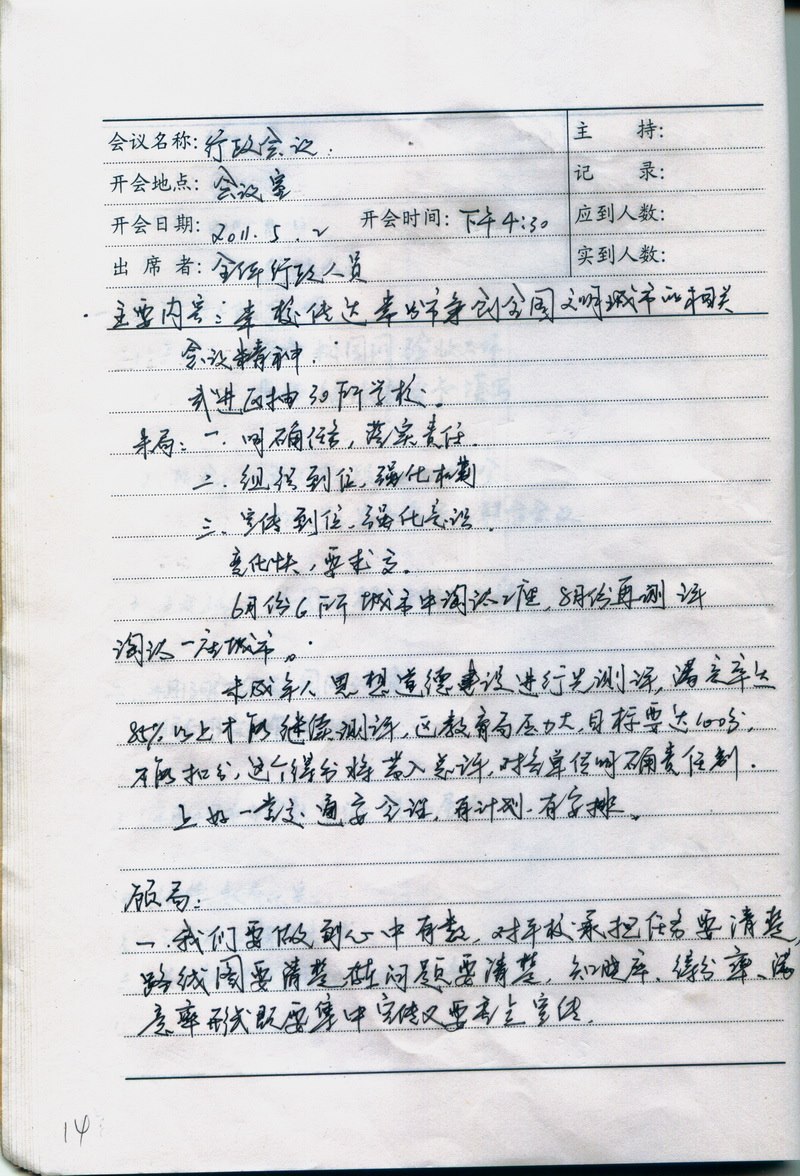 会议名称: 行政会议. 主 持:
开会地点: 会议室 记 录:
开会日期: 2011.5.2 开会时间: 下午4:30 应到人数:
出席者: 全体行政人员 实到人数:
主要内容: 李校传达常州市争创全国文明城市的相关
会议精神.
武进区抽30所学校.
局: 一. 明确任务, 落实责任.
二. 组织到位, 强化机制
三. 宣传到位, 强化意识.
变化快, 要求高.
6月份6所城市中淘汰2座, 8月份再测评
淘汰一座城市。
未成年人思想道德建设进行先测评, 满意率达
85%以上才能继续测评, 区教育局压力大, 目标要达100分,
不能扣分, 这个得分将带入总评, 对各单位明确责任制.
上好一堂交通安全课, 有计划. 有安排。
顾局:
一. 我们要做到心中有数, 对学校承担任务要清楚,
路线图要清楚, 问题要清楚, 知晓率、得分率、满
意率形式既要集中宣传又要 宣传.
14